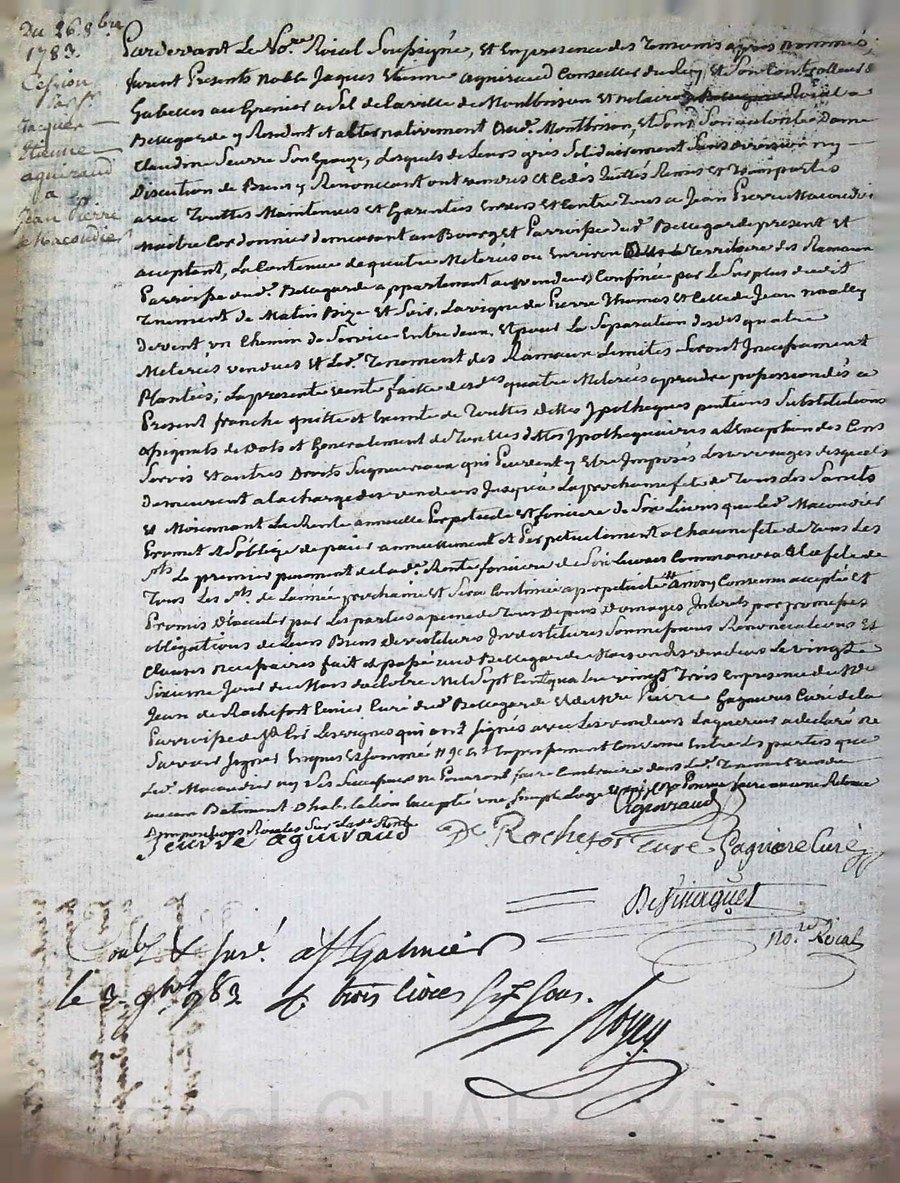 Du 26 8bre
1783.
Cession
par Sr
Jacques
Etienne
aguiraud
a
Jean Pierre
Macoudier
Pardevant Le No.re Roial Soussigné, Et Enpresence des Temoins apres nommés
furent Presents noble Jaques Etienne aguiraud Conseiller du Roy, Et Son Controlleur
Gabelles au Grenier a Sel de la ville de Montbrison Et notaire Roial a
Bellegarde y Residant et alternativement aud. Montbrison, Et Sous Son autorité Dame
Claudine Seurre Son Epouze, Lesquels de Leurs grés Solidairement Sans division ny
Discution de Biens y Renoncant ont vendus et Cedés Quittés Remis et Transportés
avec Touttes Maintenues et Garenties Envers et Contre Tous a Jean Pierre Macoudier
Maitre Cordonnier demeurant au Bourg et Parroisse dud. Bellegarde present et
acceptant, La Contenue de quatre Meterées ou Environ Territoire des Ramaux
Parroisse dud. Bellegarde appartenant aux vendeurs Confinée par Le Surplus dudit
Tenement de Matin Bize et Soir, La vigne de Pierre Thomas et Celle de Jean
devent un Chemin de Service Entre deux, Et pour La Separation desdes quatre
Meterées vendues Et Led. Tenement des Ramaux Limites Seront Incessament
Plantées; La presente vente faitte desdes quatre Meterées a prendre possession dès a
Present franche quitte et Exemte de Touttes dettes Ipotheques pentions Substitutions
assignats de Dots et Generalement de Touttes dettes Ipothequaires a L'Exception des Cens
Servis Et autres Droits Seigneuriaux qui Peuvent y Etre Imposés Les arrerages desquels
demeurent a la charge des vendeurs Jusqua La prochaine fete de Tous Les Saints
Et Moiennant La Rente annuelle Perpetuelle Et fonciere de Six Livres que Led. Macoudier
Promet et S'oblige de paier annuellement et Perpetuelement a Chacune fete de Tous Les
Sts. Le premier paiement de lad. Rente fonciere de Six Livres Commancera a La fete de
Tous Les Sts. de Lannée prochaine et Sera Continué a perpetuité Ainsy Convenu accepté Et
Promis D'executer par Les parties a peine de Tous Depens Domages Interets par promesses
obligations de Leurs Biens devetitures Investitures Soumissions Renonciations Et
Clauses necessaires fait et passé aud. Bellegarde Maison des vendeurs Le vingt
Sixieme Jour du Mois doctobre Mil Sept Cent quatre vingt Trois Enpresence de Mre
Jean de Rochefort Curé dud. Bellegarde Et de Mre Pierre Gagniere Curé de la
Parroisse de St. Cir Les vignes qui ont Signés avec Les vendeurs Laquereur a declaré ne
Savoir Signer Enquis Et Sommé Expressement Convenu Entre Les parties que
Led. Macoudier ny Ses Successeurs ne Pourront faire Construire dans Led. Tenement vendu
aucun Batiment D'habitation Excepté une Simple Loge faire aucune Retenue
D'impositions Roiales Sur Lade Rente
Aguiraud
Seurre aguiraud De Rochefort curé Gagniere Curé
No.re Roial
Coné & Insé. à St Galmier
le 3. 9bre 1783. & trois livres Six Sous.